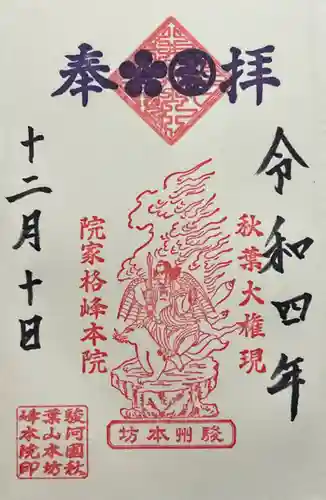 奉拝
令和四年
秋葉大権現
院家格峰本院
十二月十日
駿州本坊
駿河國秋
葉山本坊
峰本院印